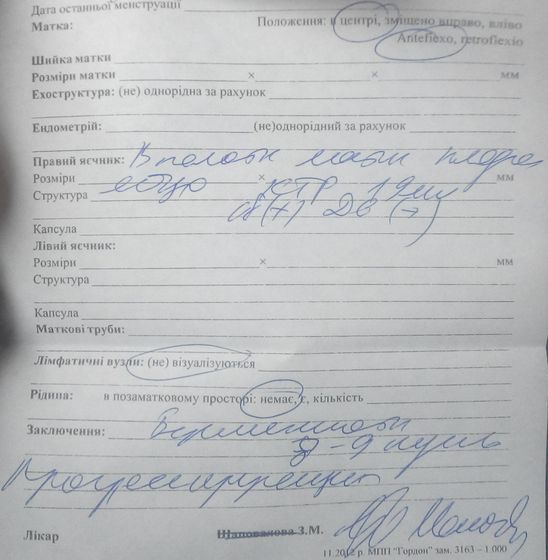 Дата останньої менструації
Матка: Положення: в центрі, зміщено вправо, вліво
Anteflexo, retroflexio
Шийка матки
Розміри матки × × мм
Ехоструктура: (не) однорідна за рахунок
Ендометрій: (не)однорідний за рахунок
Правий яєчник: В полости матки плодное
Розміри яйцо × КТР 19 мм мм
Структура
Капсула
Лівий яєчник:
Розміри × мм
Структура
Капсула
Маткові труби:
Лімфатичні вузли: (не) візуалізуються
Рідина: в позаматковому просторі: немає, є, кількість
Заключення: Беременность
8-9 недель
Прогрессирующая
Лікар Шаповалова З.М.
МПП "Гордон" зам. 3163 – 1.000